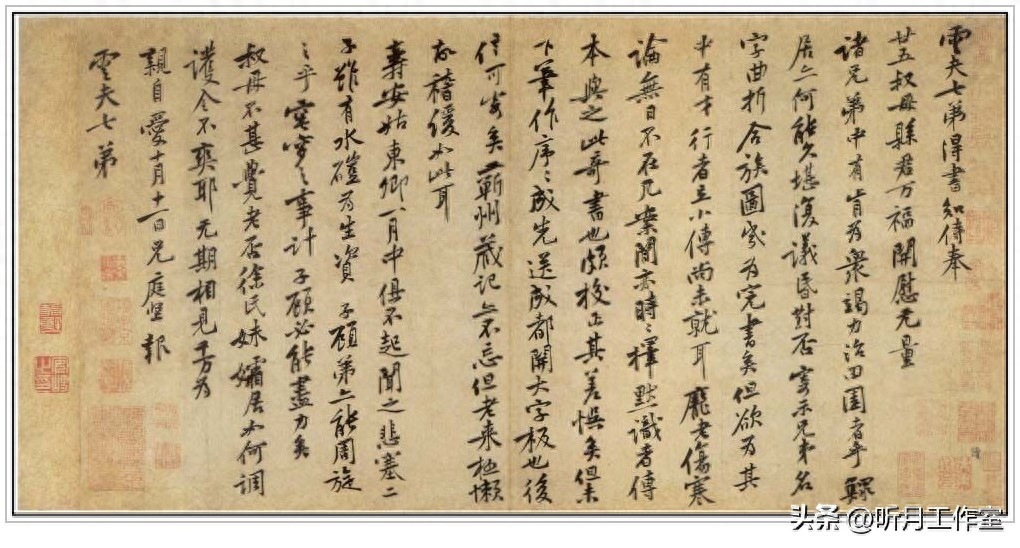 雲夫七弟得書知侍奉
廿五叔母縣君万福開慰无量
諸兄弟中有肯為衆竭力治田園者乎鰥
居亦何能久堪復議昏對否寄示兄弟名
字曲折合族圖幾為完書矣但欲為其
中有才行者立小傳尚未就耳龐老傷寒
論無日不在几案間亦時時擇默識者傳
本與之此奇書也頗校正其差悮矣但未
下筆作序序成先送成都開大字板也後
信可寄矣蘄州藏記亦不忘但老来極懶
故稽緩如此耳
壽安姑東卿一月中俱不起聞之悲塞二
子雖有水磑為生資子顧弟亦能周旋
之乎窀穸之事計子顧必能盡力矣
叔母不甚覺老否徐氏妹孀居如何調
護令不爽耶无期相見千万為
親自愛十月十一日兄庭堅報
雲夫七弟
头条@听月工作室